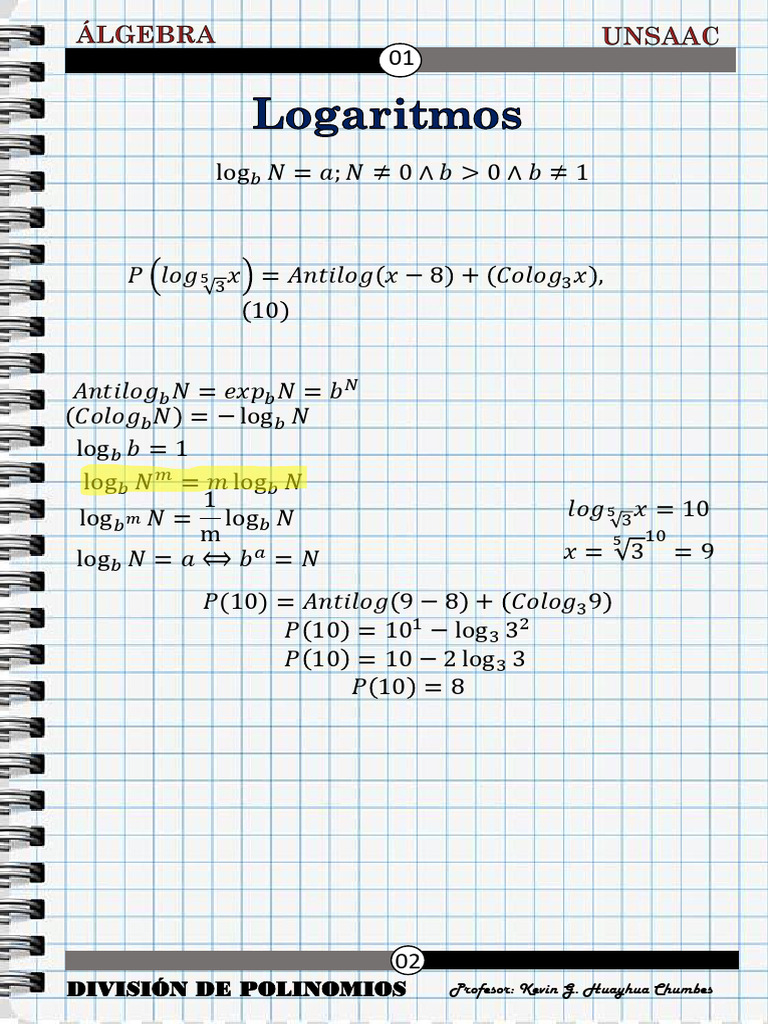 ÁLGEBRA UNSAAC
01
Logaritmos
log_b N = a; N ≠ 0 ∧ b > 0 ∧ b ≠ 1
P(log_{⁵√3} x) = Antilog(x − 8) + (Colog₃x),
(10)
Antilog_b N = exp_b N = b^N
(Colog_b N) = − log_b N
log_b b = 1
log_b N^m = m log_b N
log_{b^m} N = 1/m log_b N
log_{⁵√3} x = 10
log_b N = a ⟺ b^a = N
x = ⁵√3^10 = 9
P(10) = Antilog(9 − 8) + (Colog₃9)
P(10) = 10¹ − log₃ 3²
P(10) = 10 − 2 log₃ 3
P(10) = 8
02
DIVISIÓN DE POLINOMIOS Profesor: Kevin G. Huayhua Chumbes